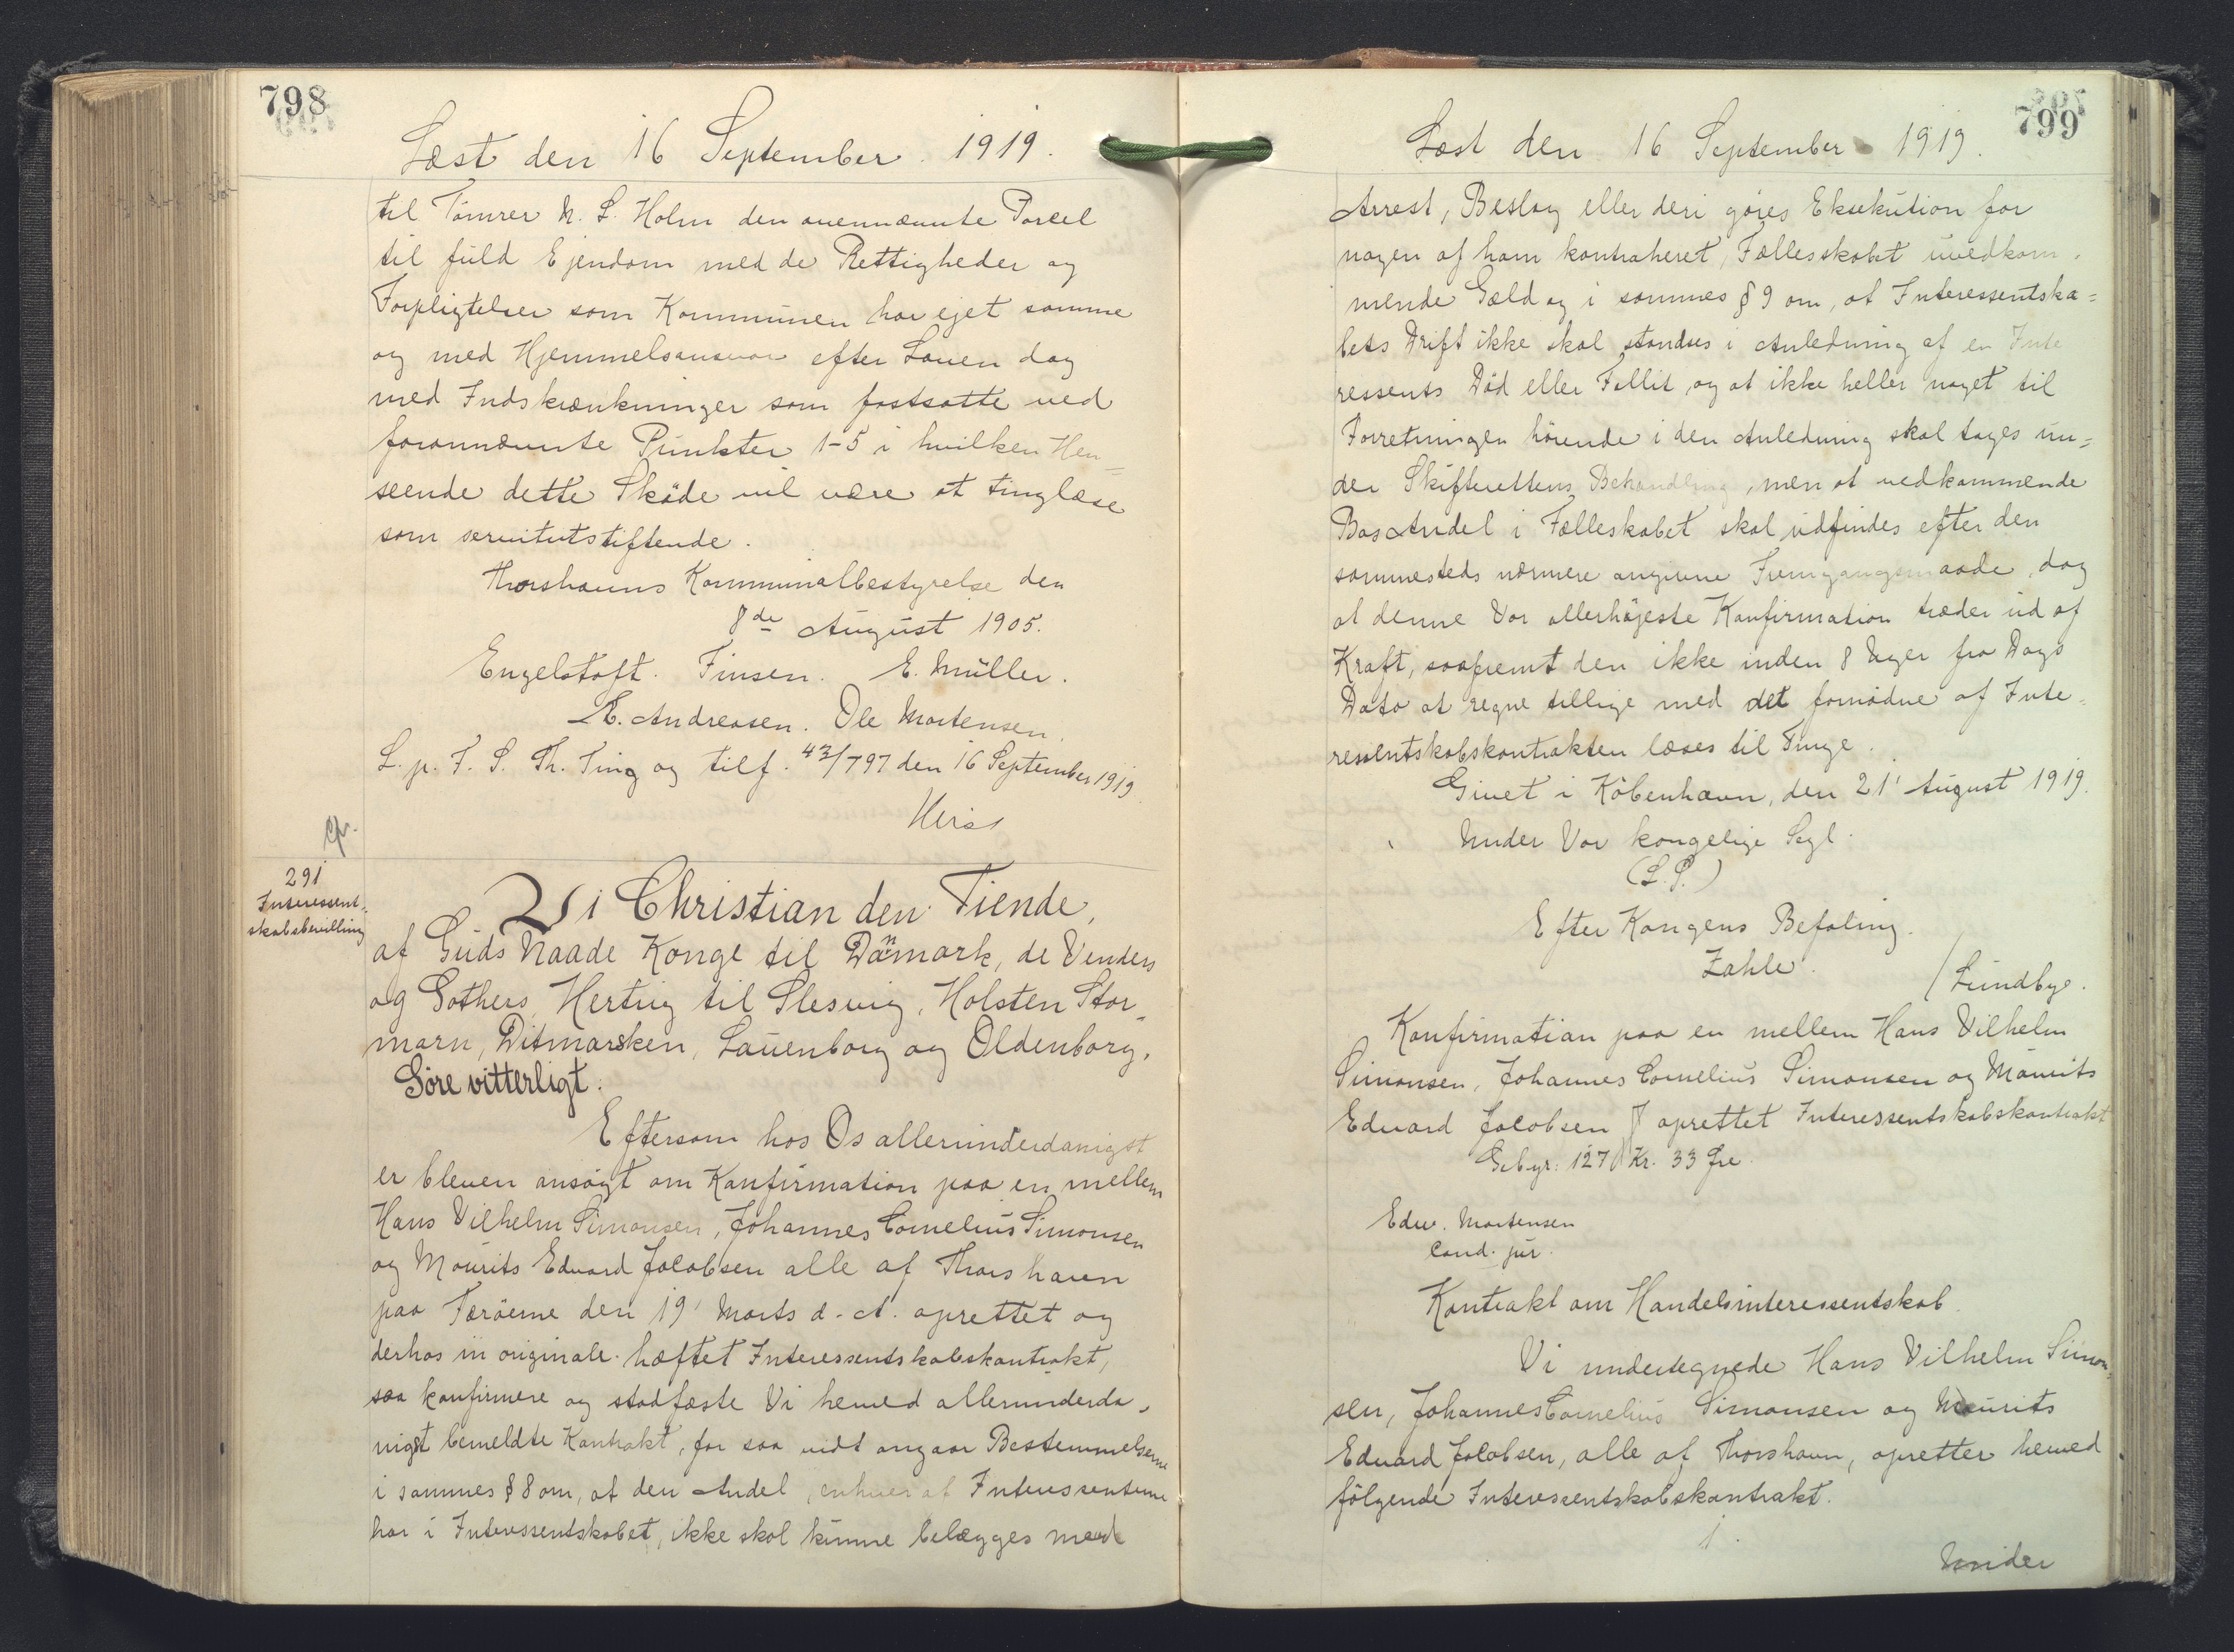 798
Læst den 16 September 1919.
til Tømrer N. L. Holm den ovennævnte Parcel
til fuld Ejendom med de Rettigheder og
Forpligtelser som Kommunen har ejet samme
og med Hjemmelsansvar efter Loven dog
med Indskrænkninger som fastsatte ved
forannævnte Punkter 1-5 i hvilken Hen=
seende dette Skøde vil være at tinglæse
som servitutstiftende.
Thorshavns Kommunalbestyrelse den
8de August 1905.
Engelstoft. Finsen. E. Müller.
A. Andreasen. Ole Mortensen.
L. p. F. S. Th. Ting og tilf. 42/797 den 16 September 1919
291
Interessent-
skabsbevilling
Vi Christian den Tiende,
af Guds Naade Konge til Danmark, de Venders
og Gothers, Hertug til Slesvig, Holsten Stor-
marn, Ditmarsken, Lauenborg og Oldenborg,
Göre vitterligt:
Eftersom hos Os allerunderdanigst
er bleven ansøgt om Konfirmation paa en mellem
Hans Vilhelm Simonsen, Johannes Cornelius Simonsen
og Mourits Edvard Jacobsen alle af Thorshavn
paa Færøerne den 19' Marts d. A. oprettet og
derhos in originale hæftet Interessentskabskontrakt,
saa konfirmere og stadfæste Vi herved allerunderda-
nigst bemeldte Kontrakt, for saa vidt angaar Bestemmelserne
i sammes § 8 om, at den Andel, enhver af Interessenterne
har i Interessentskabet, ikke skal kunne belægges med
799
Læst den 16 September 1919.
Arrest, Beslag eller deri gøres Eksekution for
nogen af ham kontraheret, Fællesskabet uvedkom-
mende Gæld og i sammes § 9 om, at Interessentska=
bets Drift ikke skal standses i Anledning af en Inte
ressents Død eller Fallit, og at ikke heller noget til
Forretningen hørende i den Anledning skal tages un=
der Skifterettens Behandling, men at vedkommende
Bos Andel i Fælleskabet skal udfindes efter den
sammesteds nærmere angivne Fremgangsmaade, dog
at denne Vor allerhøjeste Konfirmation træder ud af
Kraft, saafremt den ikke inden 8 Uger fra Dags
Dato at regne tillige med det fornødne af Inte-
ressentskabskontrakten læses til Tinge.
Givet i København, den 21' August 1919.
Under Vor kongelige Segl.
(L.S.)
Efter Kongens Befaling.
Zahle.
/Lundbye.
Konfirmation paa en mellem Hans Vilhelm
Simonsen, Johannes Cornelius Simonsen og Mourits
Edvard Jacobsen oprettet Interessentskabskontrakt
Gebyr: 127 Kr. 33 Øre
Edw. Mortensen
cand. jur.
Kontrakt om Handelsinteressentskab.
Vi undertegnede Hans Vilhelm Simon-
sen, Johannes Cornelius Simonsen og Mourits
Edvard Jacobsen, alle af Thorshavn, opretter herved
følgende Interessentskabskontrakt.
1.
Under